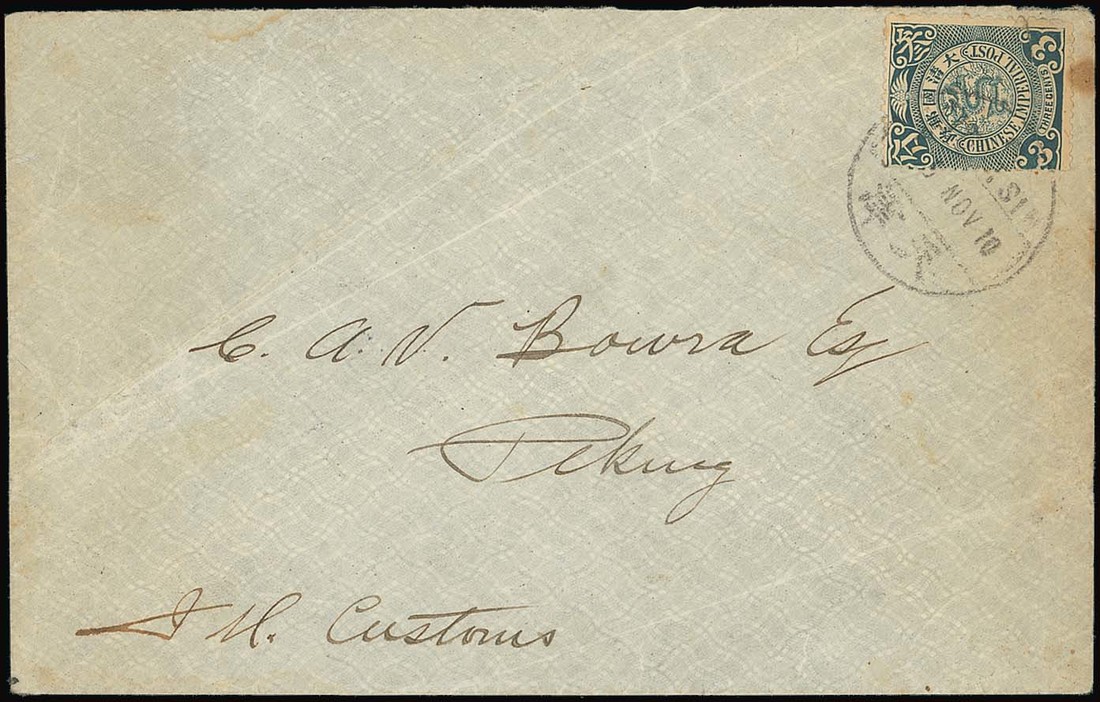 大清國郵政
CHINESE IMPERIAL POST
3
THREE CENTS
3
NOV 10
C. A. V. Bowra Esq
Peking
I M. Customs